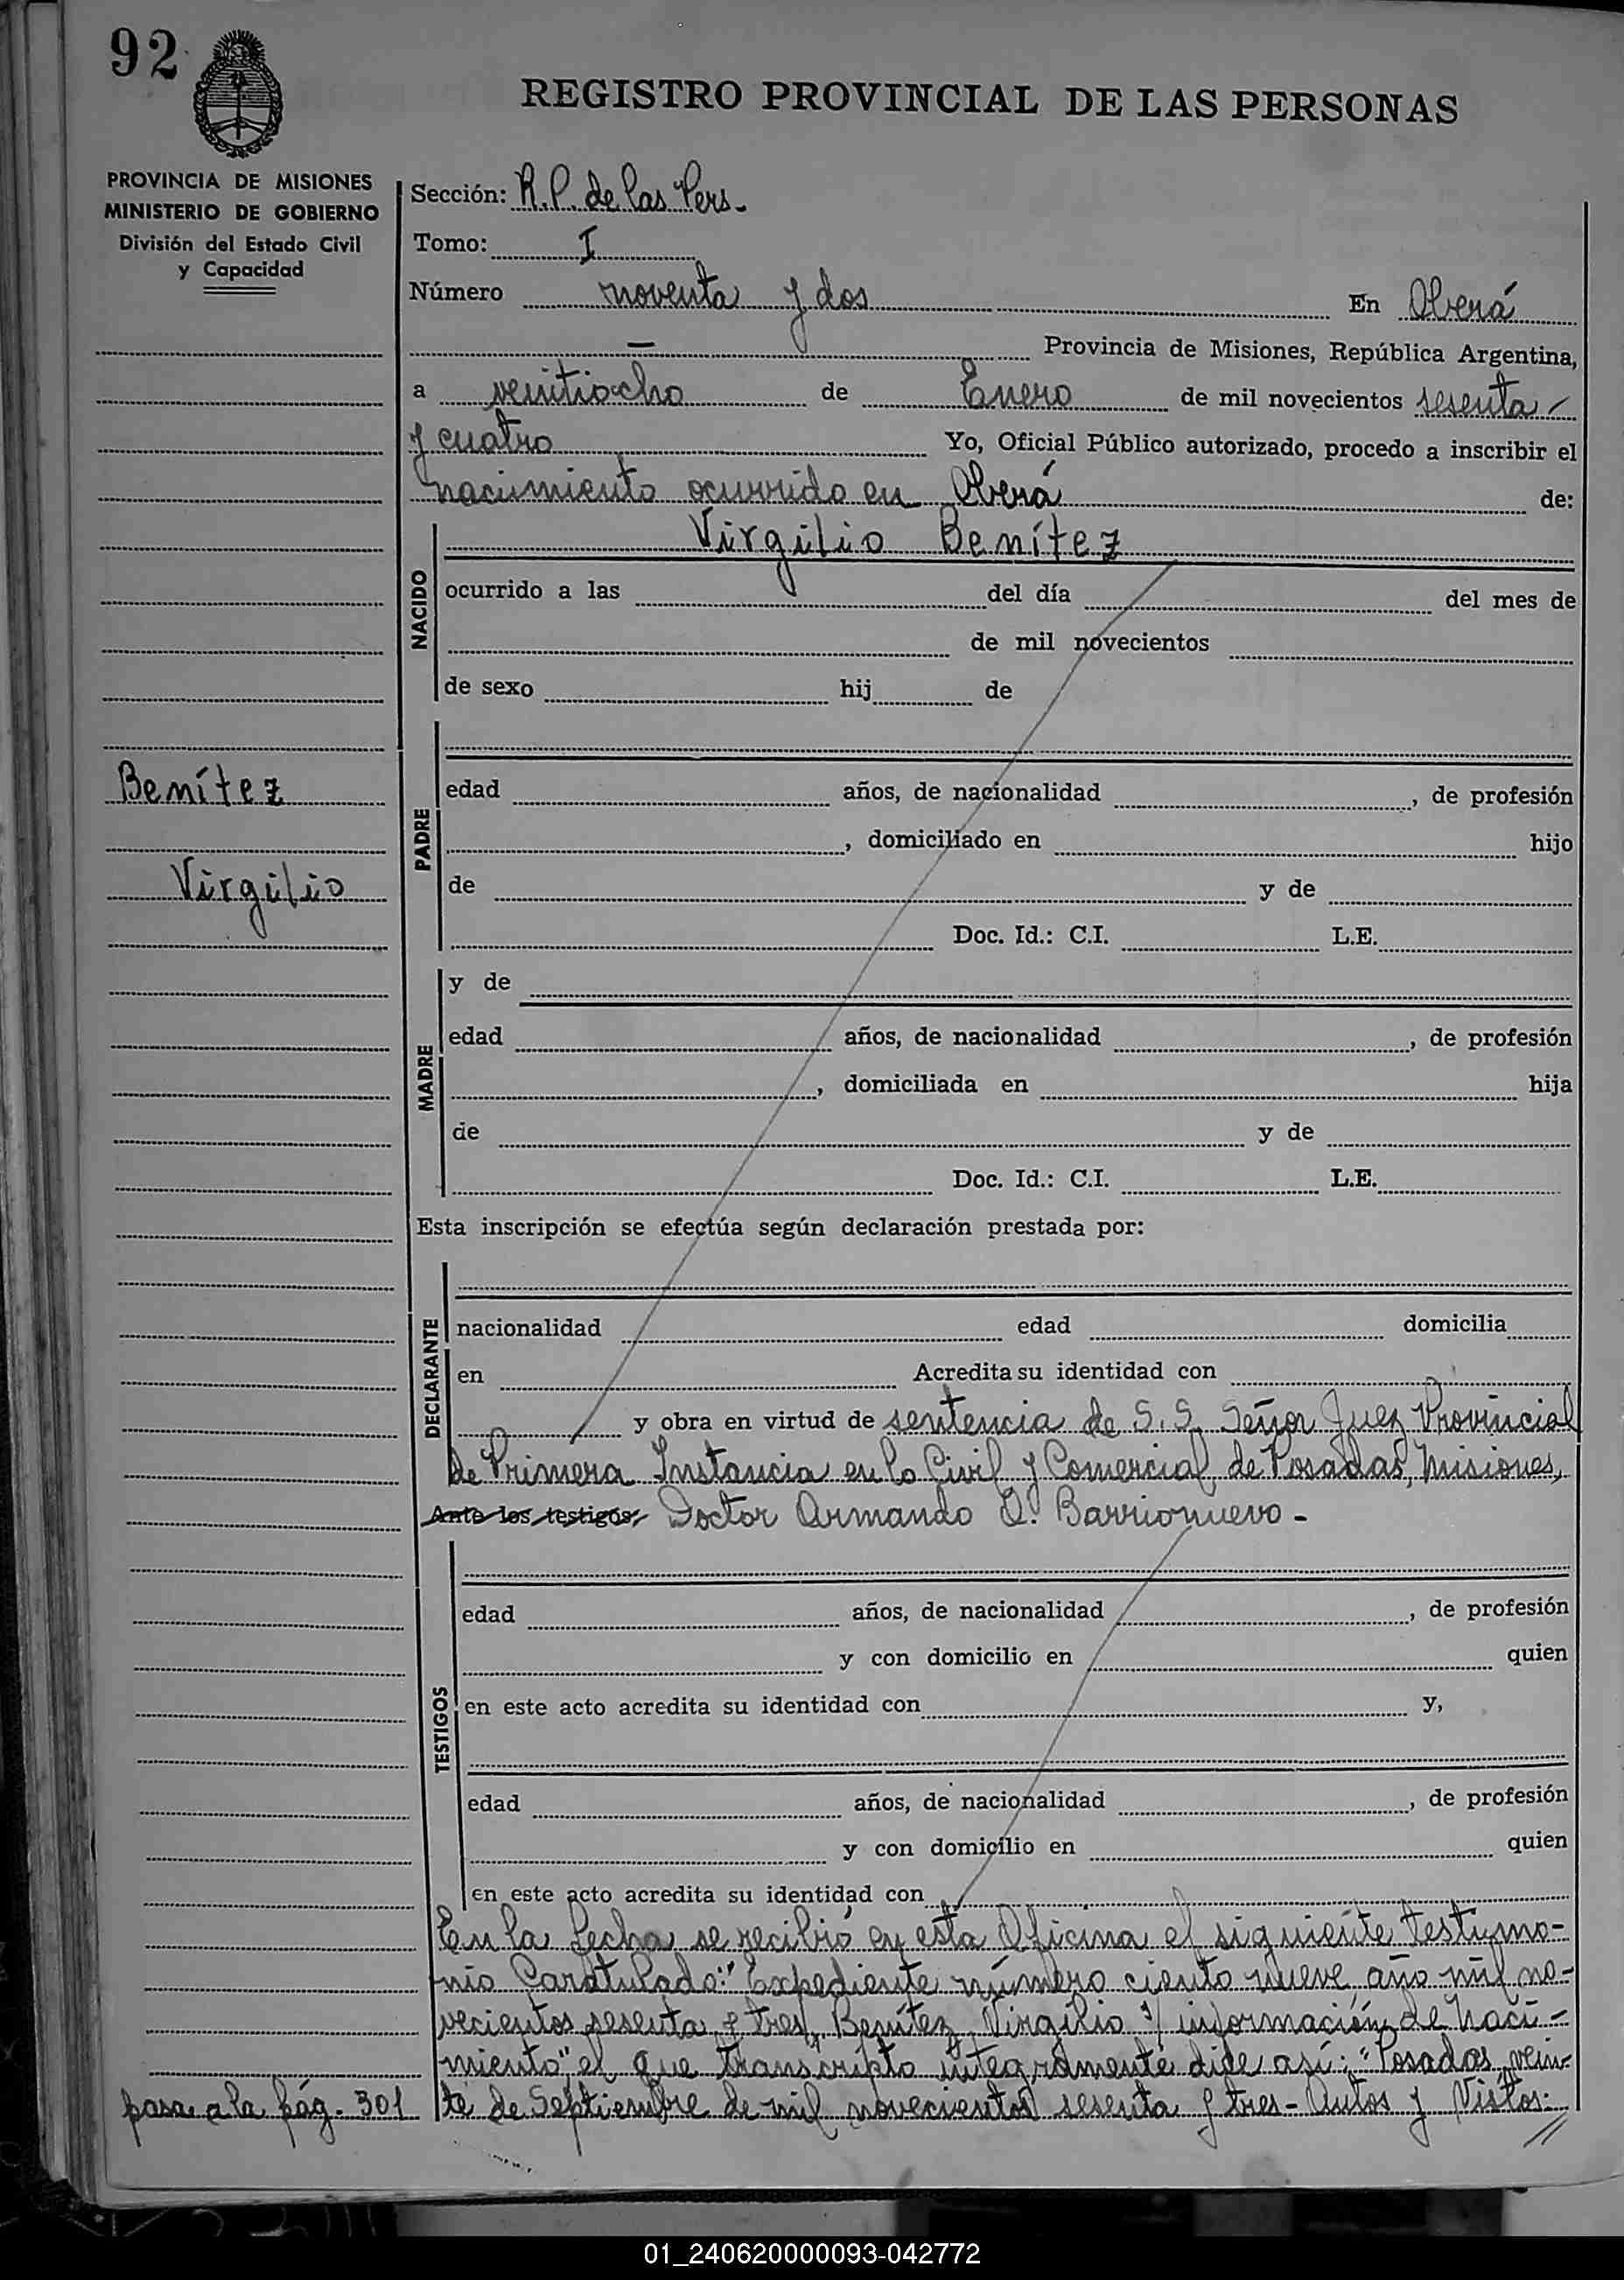 92
REGISTRO PROVINCIAL DE LAS PERSONAS
PROVINCIA DE MISIONES
MINISTERIO DE GOBIERNO
División del Estado Civil
y Capacidad
Sección: R.P. de las Pers.
Tomo: I
Número noventa y dos En Oberá
Provincia de Misiones, República Argentina,
a veintiocho de Enero de mil novecientos sesenta
y cuatro Yo, Oficial Público autorizado, procedo a inscribir el
nacimiento ocurrido en Oberá de:
Virgilio Benítez
NACIDO
ocurrido a las del día del mes de
de mil novecientos
de sexo hij de
Benítez
Virgilio
PADRE
edad años, de nacionalidad , de profesión
, domiciliado en hijo
de y de
Doc. Id.: C.I. L.E.
MADRE
y de
edad años, de nacionalidad , de profesión
, domiciliada en hija
de y de
Doc. Id.: C.I. L.E.
Esta inscripción se efectúa según declaración prestada por:
DECLARANTE
nacionalidad edad domicilia
en Acredita su identidad con
y obra en virtud de sentencia de S.S. Señor Juez Provincial
de Primera Instancia en lo Civil y Comercial de Posadas, Misiones,
Ante los testigos, Doctor Armando Barrionuevo -
TESTIGOS
edad años, de nacionalidad , de profesión
y con domicilio en quien
en este acto acredita su identidad con y,
edad años, de nacionalidad , de profesión
y con domicilio en quien
en este acto acredita su identidad con
En la fecha se recibió en esta Oficina el siguiente testimo-
nio Caratulado: "Expediente número ciento nueve año mil no-
vecientos sesenta y tres, Benítez Virgilio s/ información de naci-
miento", el que transcripto integramente dide así: "Posadas, vein-
te de Septiembre de mil novecientos sesenta y tres - Autos y Vistos:
pasa a la pág. 301
//
01_240620000093-042772